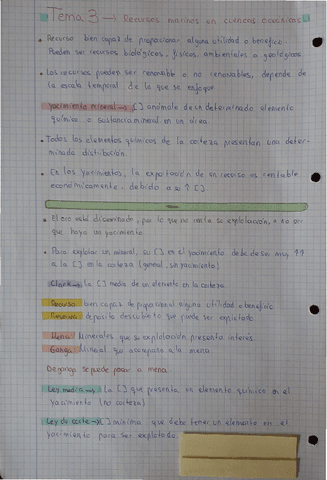 Tema 3 → Recursos marinos en cuencas oceánicas
• Recurso bien capas de proporcionar alguna utilidad o benefic.
Pueden ser recursos biológicos, físicos, ambientales o geológicos
• Los recursos pueden ser renovable o no renovables, depende de
la escala temporal de la que se enfoque
Yacimiento mineral → [ ] anómala de un determinado elemento
químico o sustancia mineral en un área.
• Todos los elementos químicos de la corteza presentan una deter-
minada distribución.
• En los yacimientos, la explotación de un recurso es rentable
económicamente, debido a su ↑ [ ].
• El oro está diseminado, por lo que no renta su explotación, a no ser
que haya un yacimiento.
• Para explotar un mineral, su [ ] en el yacimiento debe de ser muy ↑↑
a la [ ] en la corteza (general, sin yacimiento)
Clarke → La [ ] media de un elemento en la corteza
Recurso bien capas de proporcionar alguna utilidad o benefic
Reserva depósito descubierto que puede ser explotado
Mena Minerales que su explotación presenta interés.
Ganga Mineral que acompaña a la mena
De ganga se puede pasar a mena.
Ley media → La [ ] que presenta un elemento químico en el
yacimiento (no corteza)
Ley de corte → [ ] mínima que debe tener un elemento en el
yacimiento para ser explotado.